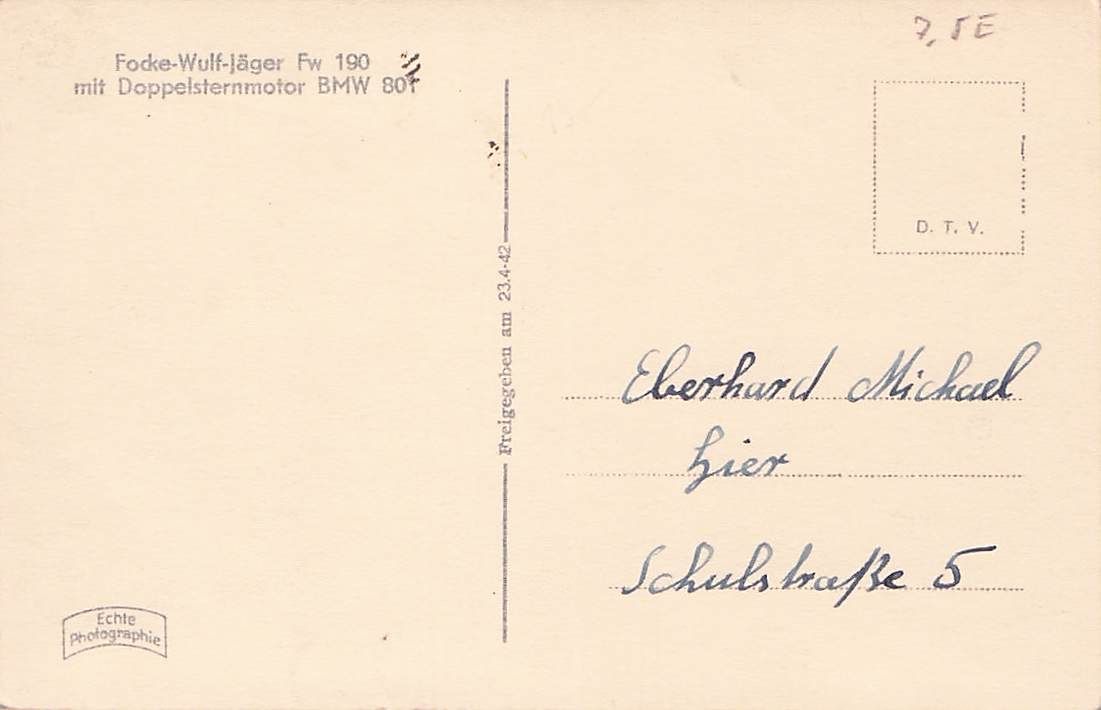 7,5E
Focke-Wulf-Jäger Fw 190
mit Doppelsternmotor BMW 801
D. T. V.
Freigegeben am 23.4.42
Eberhard Michael
hier
Schulstraße 5
Echte
Photographie